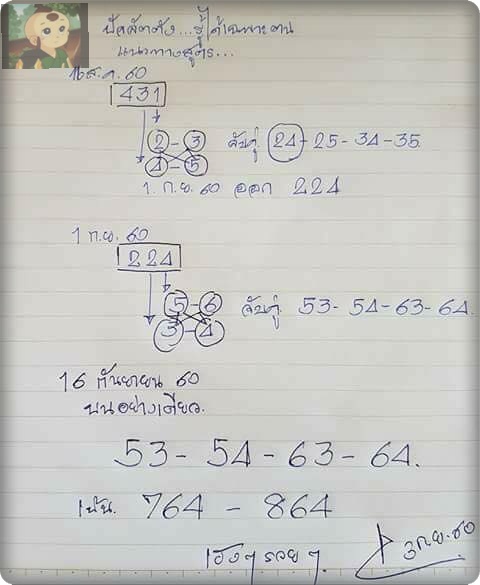 ปัดลัดตัง...รู้ได้เฉพาะตน
แนวทางสูตร...
16 ส.ค. 60
431
2 - 3 จับคู่ 24 - 25 - 34 - 35
4 - 5
1. ก.ย. 60 ออก 224
1 ก.ย. 60
224
5 - 6 จับคู่ 53 - 54 - 63 - 64.
3 - 4
16 กันยายน 60
บนอย่างเดียว.
53 - 54 - 63 - 64.
เน้น. 764 - 864
เฮงๆ รวยๆ. 3 ก.ย. 60